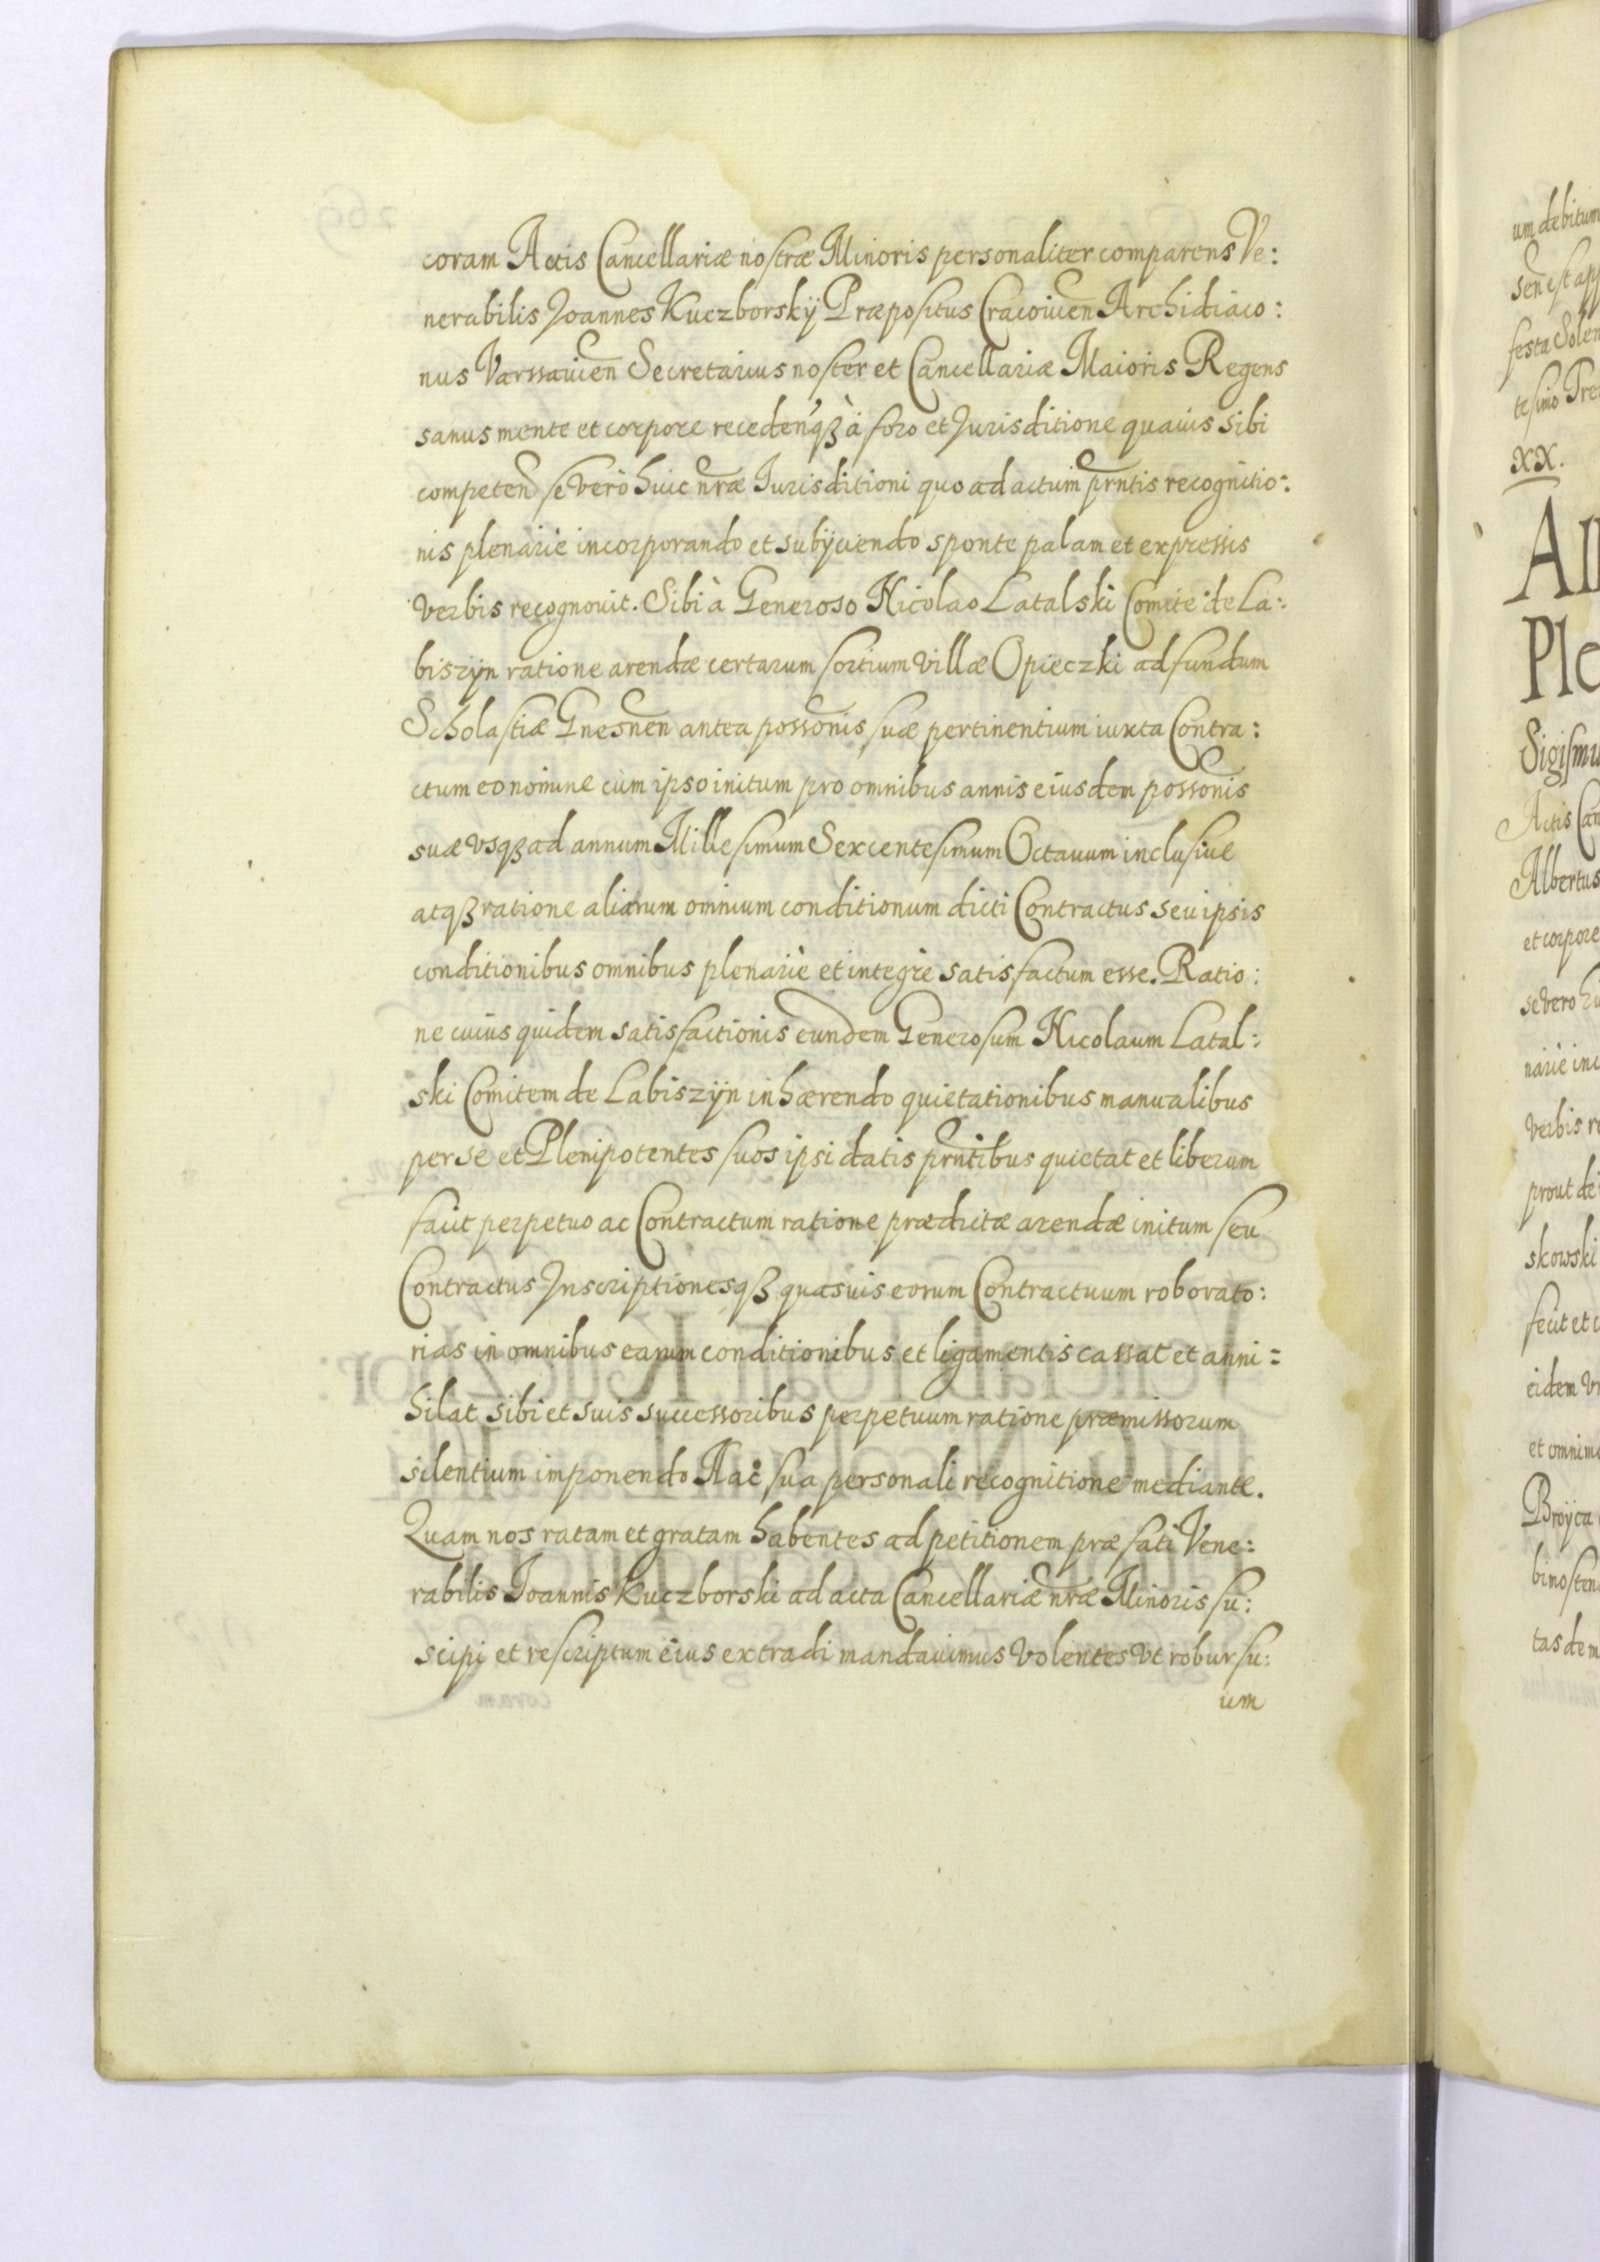 coram Actis Cancellariæ nostræ Minoris personaliter comparens Ve:
nerabilis Joannes Kuczborskÿ Præpositus Cracovien Archidiaco:
nus Varssavien Secretarius noster et Cancellariæ Maioris Regens
sanus mente et corpore receden'qȝ à foro et Jurisditione quavis sibi
competen se vero huic nræ Iurisditioni quo ad actum prntis recognitio:
nis plenariè incorporando et subÿciendo sponte palam et expressis
verbis recognovit. Sibi à Generoso Nicolao Latalski Comite de La:
biszÿn ratione arendæ certarum sortium villæ Opieczki ad fundum
Scholastiæ Gnesnen antea possonis suæ pertinentium iuxta Contra:
ctum eo nomine cum ipso initum pro omnibus annis eiusdem possonis
suæ vsqȝ ad annum Millesimum Sexcentesimum Octauum inclusive
atqȝ ratione aliarum omnium conditionum dicti Contractus seu ipsis
conditionibus omnibus plenariè et integrè satisfactum esse. Ratio:
ne cuius quidem satisfactionis eundem Generosum Nicolaum Latal:
ski Comitem de Labiszÿn inhærendo quietationibus manualibus
per se et Plenipotentes suos ipsi datis prntibus quietat et liberum
facit perpetuo ac Contractum ratione prædictæ arendæ initum seu
Contractus Inscriptionesqȝ quasuis eorum Contractuum roborato:
rias in omnibus earum conditionibus et ligamentis cassat et anni:
hilat sibi et suis successoribus perpetuum ratione præmissorum
silentium imponendo Hac sua personali recognitione mediante.
Quam nos ratam et gratam habentes ad petitionem præfati Vene:
rabilis Joannis Kuczborski ad acta Cancellariæ nræ Minoris su:
scipi et rescriptum eius extradi mandauimus volentes vt robur su:
um
um debitum
sen est app
festa Solen
tesimo Tre
XX.
Ple
Sigismu
Actis Can
Albertus
et corpore
se vero hu
narie inc
verbis re
prout de
skowski
fecit et
eidem
et omnim
Broÿca
tas de m